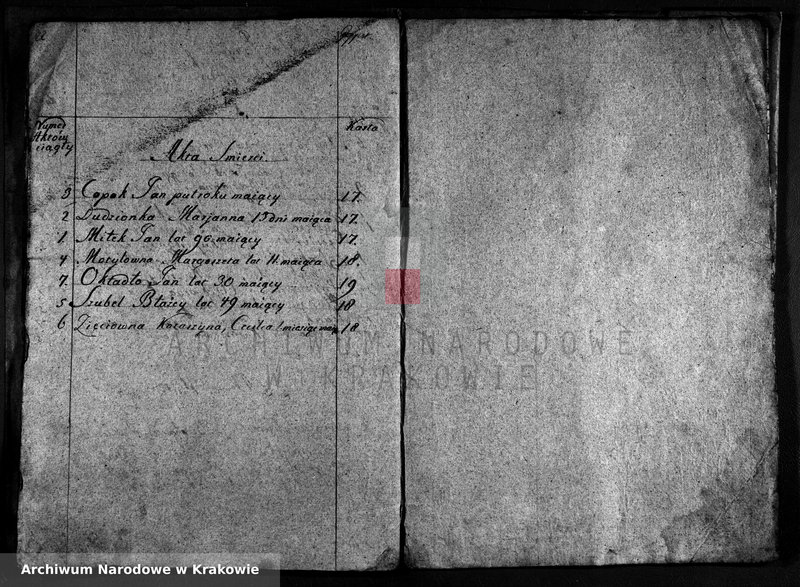 Numer
Aktow
ciągły
Karta
Akta Smierci
3 Copek Jan pułroku maiący 17.
2 Dudzionka Marjanna 15 dni maiąca 17.
1 Mitek Jan lat 90 maiący 17.
4 Motylowna Margorzeta lat 11. maiąca 18.
7. Okładło Jan lat 30 maiący 19
5 Szubel Błażey lat 49 maiący 18
6 Zięciowna Katarzyna, 18
ARCHIWUM NARODOWE
W KRAKOWIE
Archiwum Narodowe w Krakowie